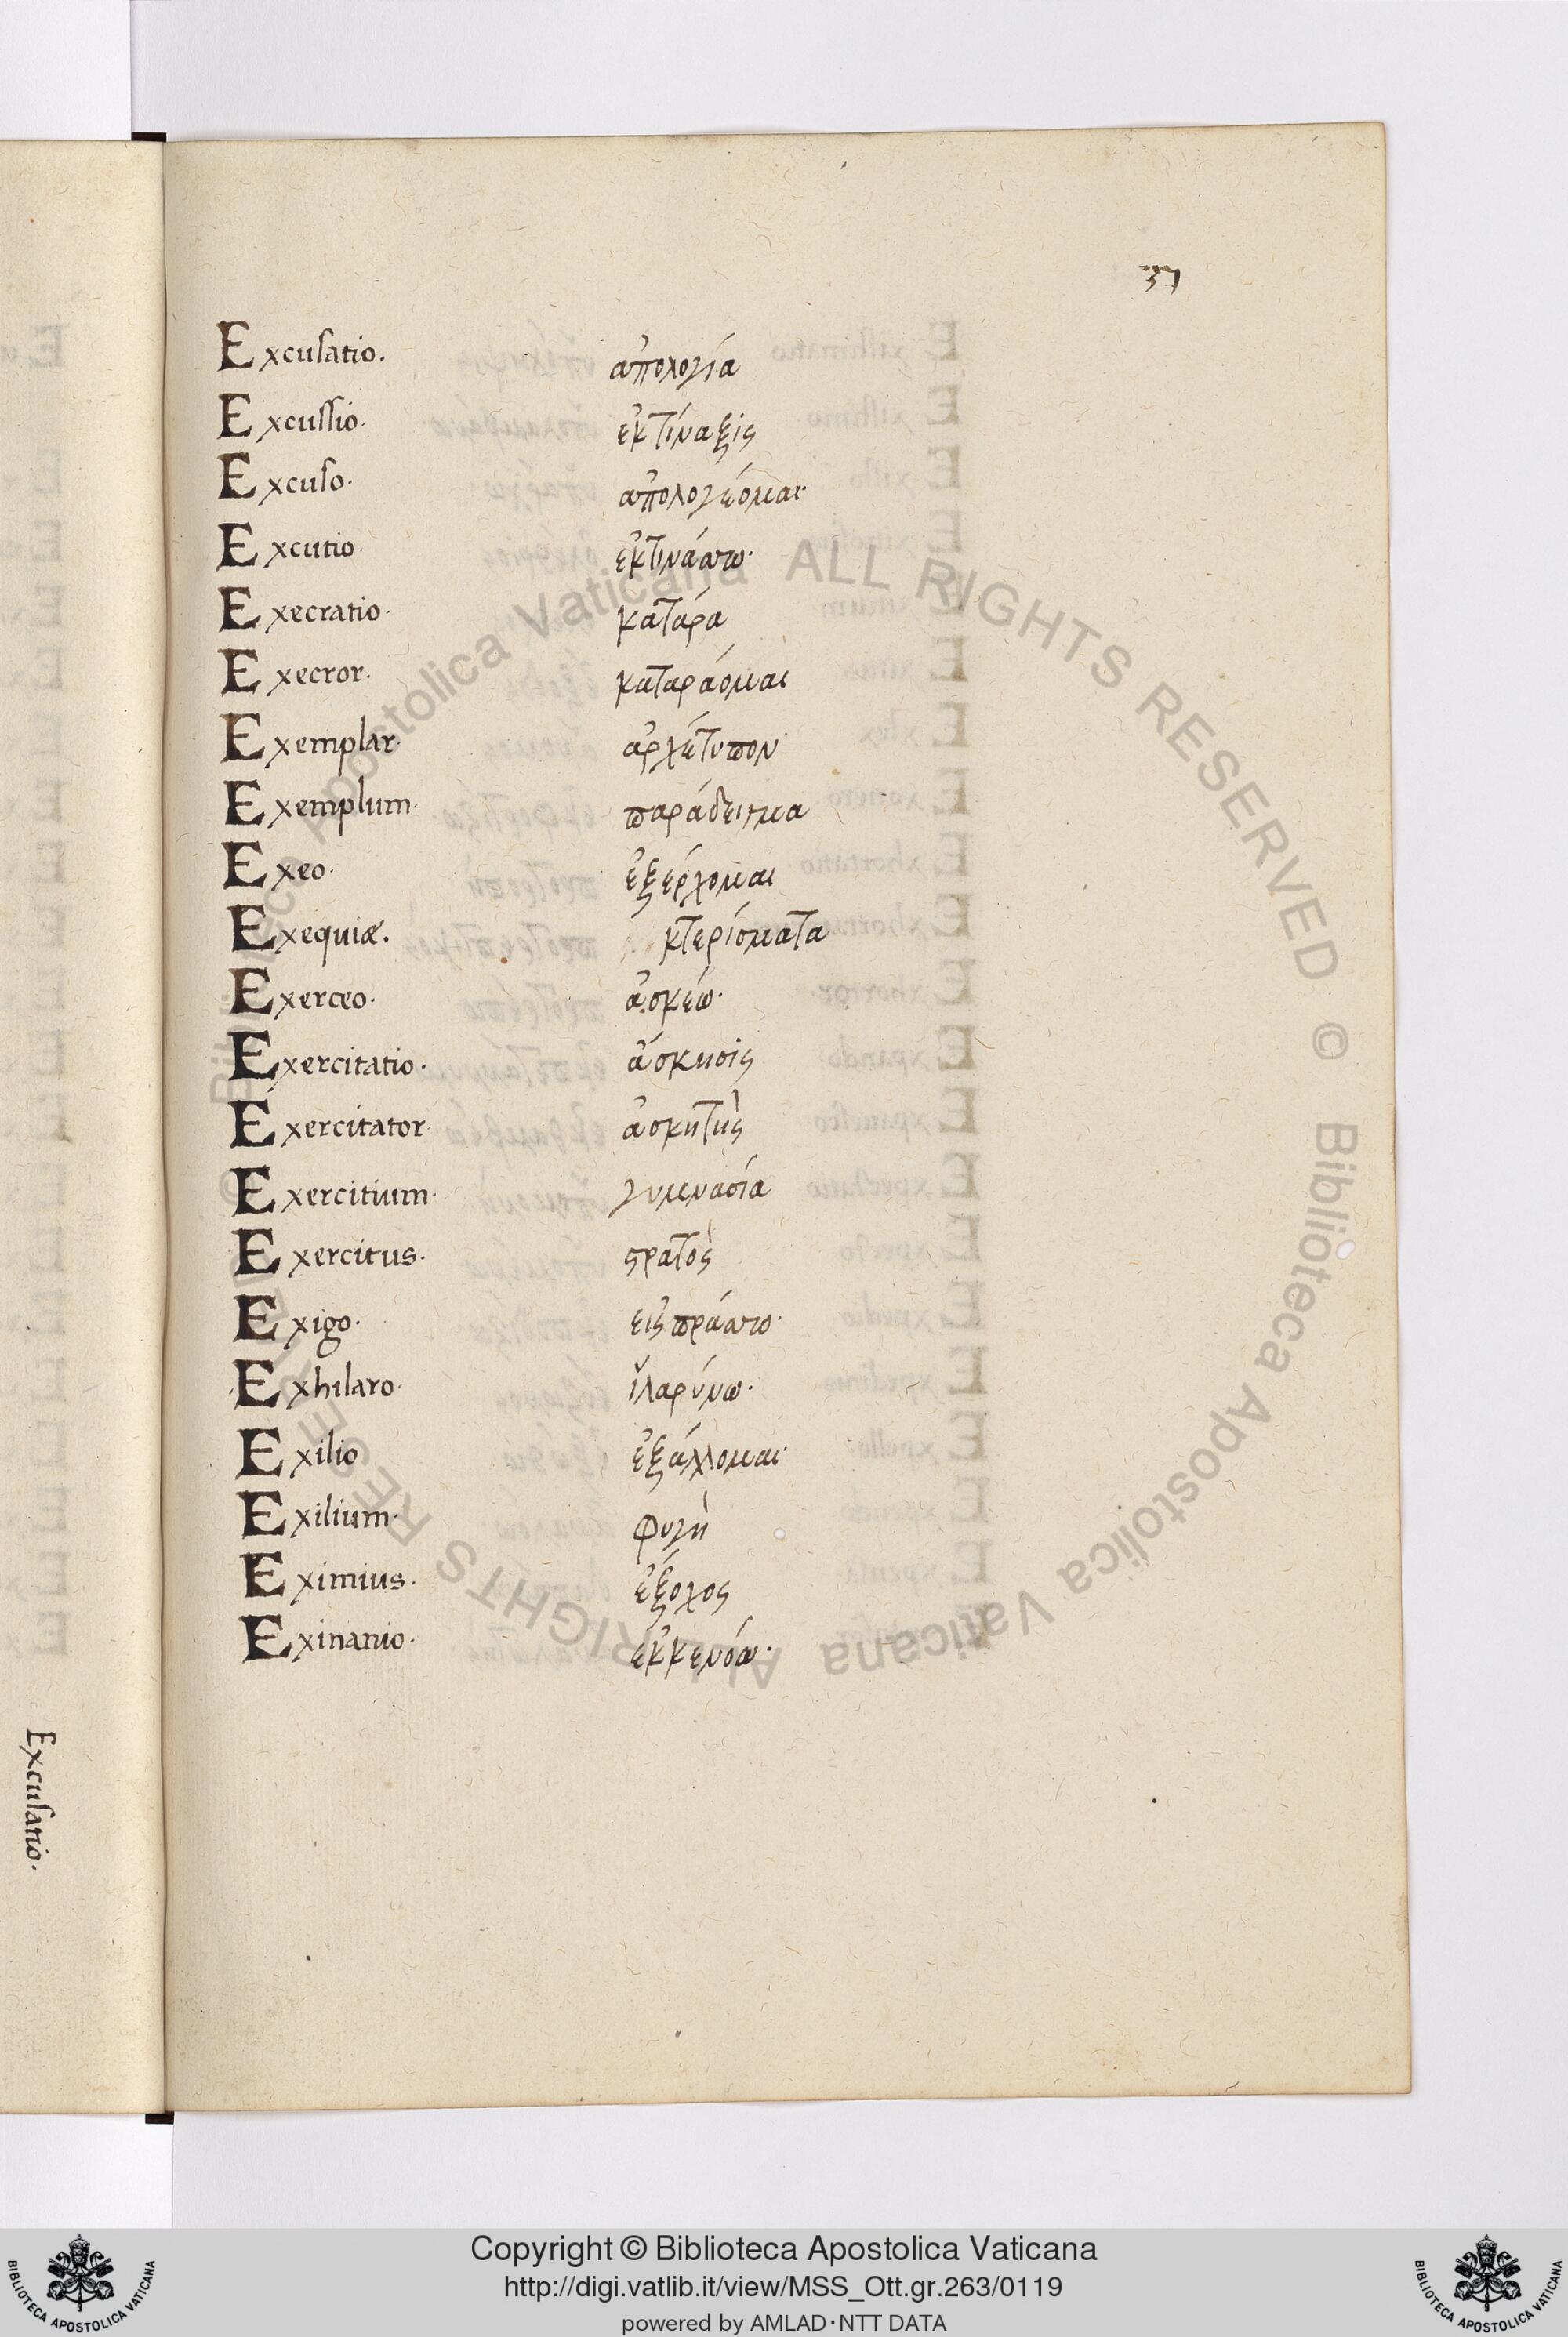 37
Excusatio. ἀπολογία
Excussio. ἐκτίναξις
Excuso. ἀπολογέομαι
Excutio. ἐκτινάττω.
Execratio. κατάρα
Execror. καταράομαι
Exemplar. ἀρχέτυπον
Exemplum. παράδειγμα
Exeo. ἐξέρχομαι
Exequiæ. κτερίσματα
Exerceo. ἀσκέω.
Exercitatio. ἄσκησις
Exercitator ἀσκητὴς
Exercitium. γυμνασία
Exercitus. στρατὸς
Exigo. εἰσπράττω.
Exhilaro. ἱλαρύνω.
Exilio ἐξάλλομαι
Exilium. φυγὴ
Eximius. ἔξοχος
Exinanio. ἐκκενόω.
Excusatio.
© Biblioteca Apostolica Vaticana ALL RIGHTS RESERVED © Biblioteca Apostolica Vaticana ALL RIGHTS RESERVED
Copyright © Biblioteca Apostolica Vaticana
http://digi.vatlib.it/view/MSS_Ott.gr.263/0119
powered by AMLAD·NTT DATA
BIBLIOTECA APOSTOLICA VATICANA
BIBLIOTECA APOSTOLICA VATICANA